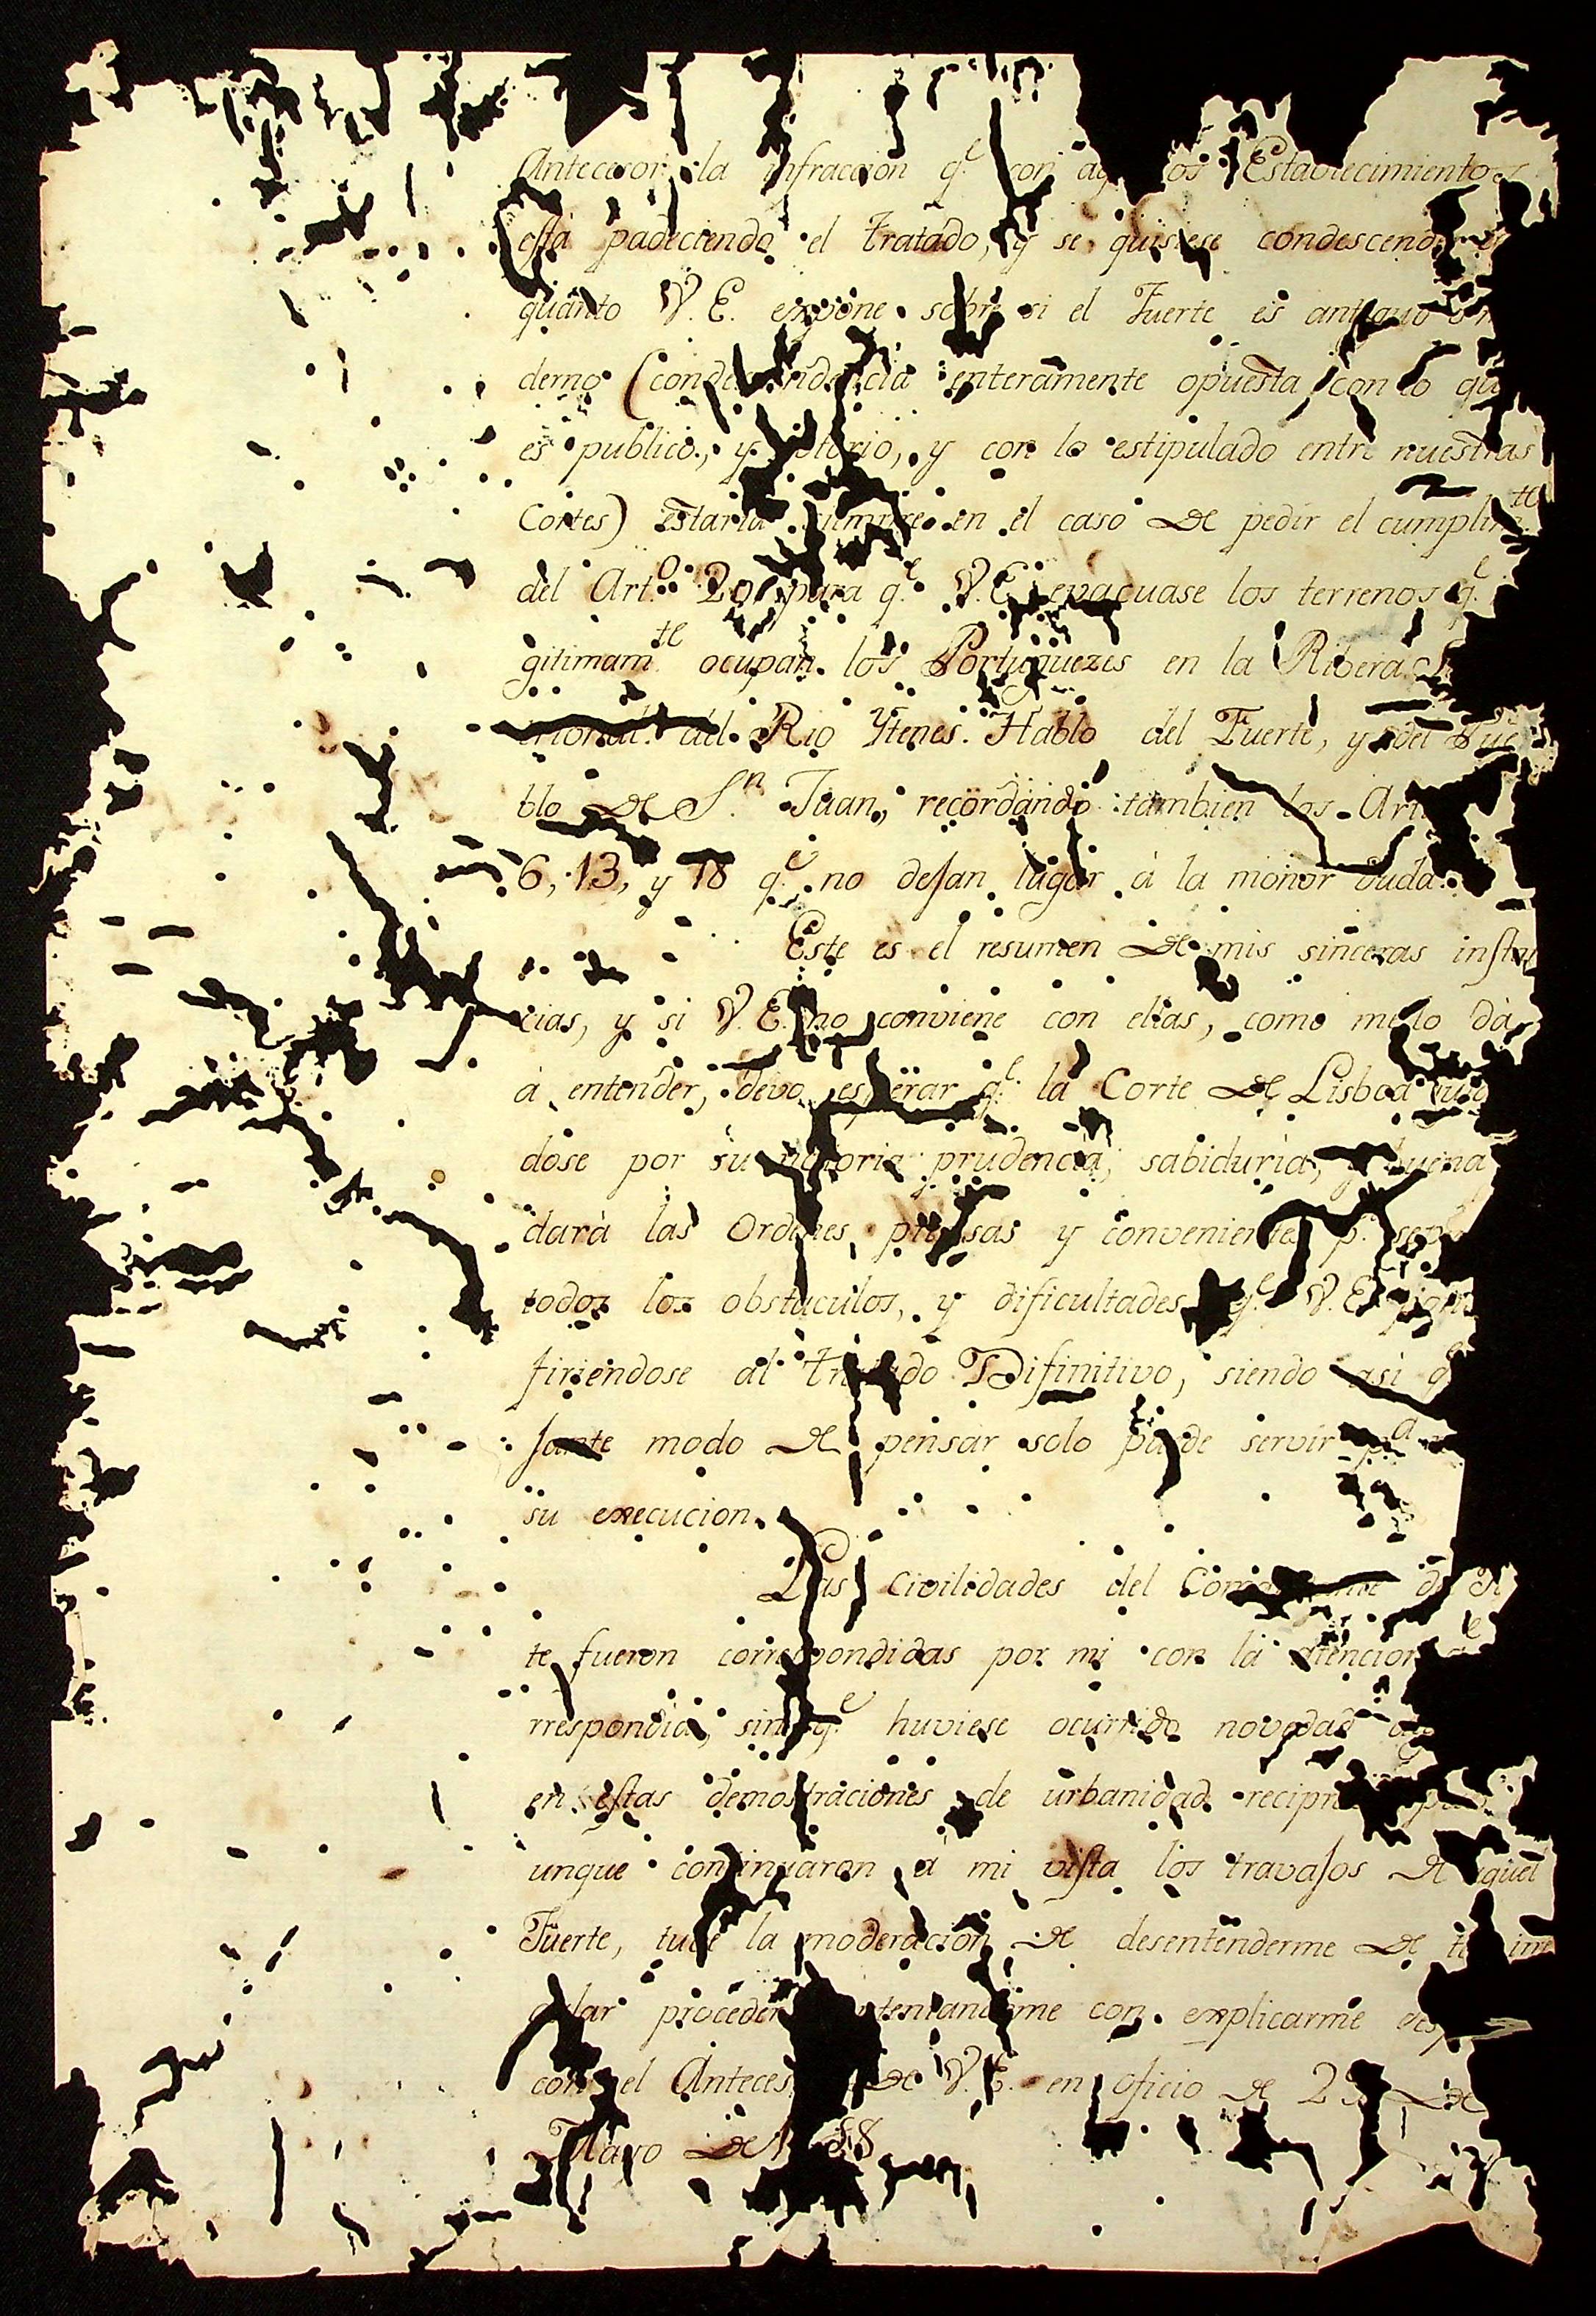 Antecesor la infraccion q.e con Establecimientos
está padeciendo el tratado, y se quisiese
quanto V. E. expone sobre si el Fuerte es antiguo
derno (condescendencia enteramente opuesta con lo que
es publico, y notorio, y con lo estipulado entre nuestras
Cortes) estaria siempre en el caso de pedir el
del Art.o 20 para q.e V. E. evacuase los terrenos q.e
gitimam.te ocupan los Portuguezes en la Ribera
del Rio Ytenes. Hablo del Fuerte, y del Pue
blo de S.n Juan, recordando tambien los
6, 13, y 18 q.e no dejan lugar à la menor duda.
Este es el resumen de mis sinceras instan
cias, y si V. E. no conviene con ellas, como me lo dà
à entender, devo esperar q.e la Corte de Lisboa
dose por su notoria prudencia, sabiduria, y buena
darà las Ordenes, precisas y convenientes p.a
todos los obstaculos, y dificultades q.e V. E.
firiendose al tratado Difinitivo, siendo asi q
jante modo de pensar solo puede servir p.a
su execucion.
Las civilidades del Comandante de
te fueron correspondidas por mi con la atencion q.e
rrespondia, sin q.e huviese ocurrido novedad
en estas demostraciones de urbanidad
unque continuaron à mi vista los travajos de aquel
Fuerte, tuve la moderacion de desentenderme de
gular proceder contentandome con explicarme
con el Antecesor de V. E. en oficio de de
Mayo de